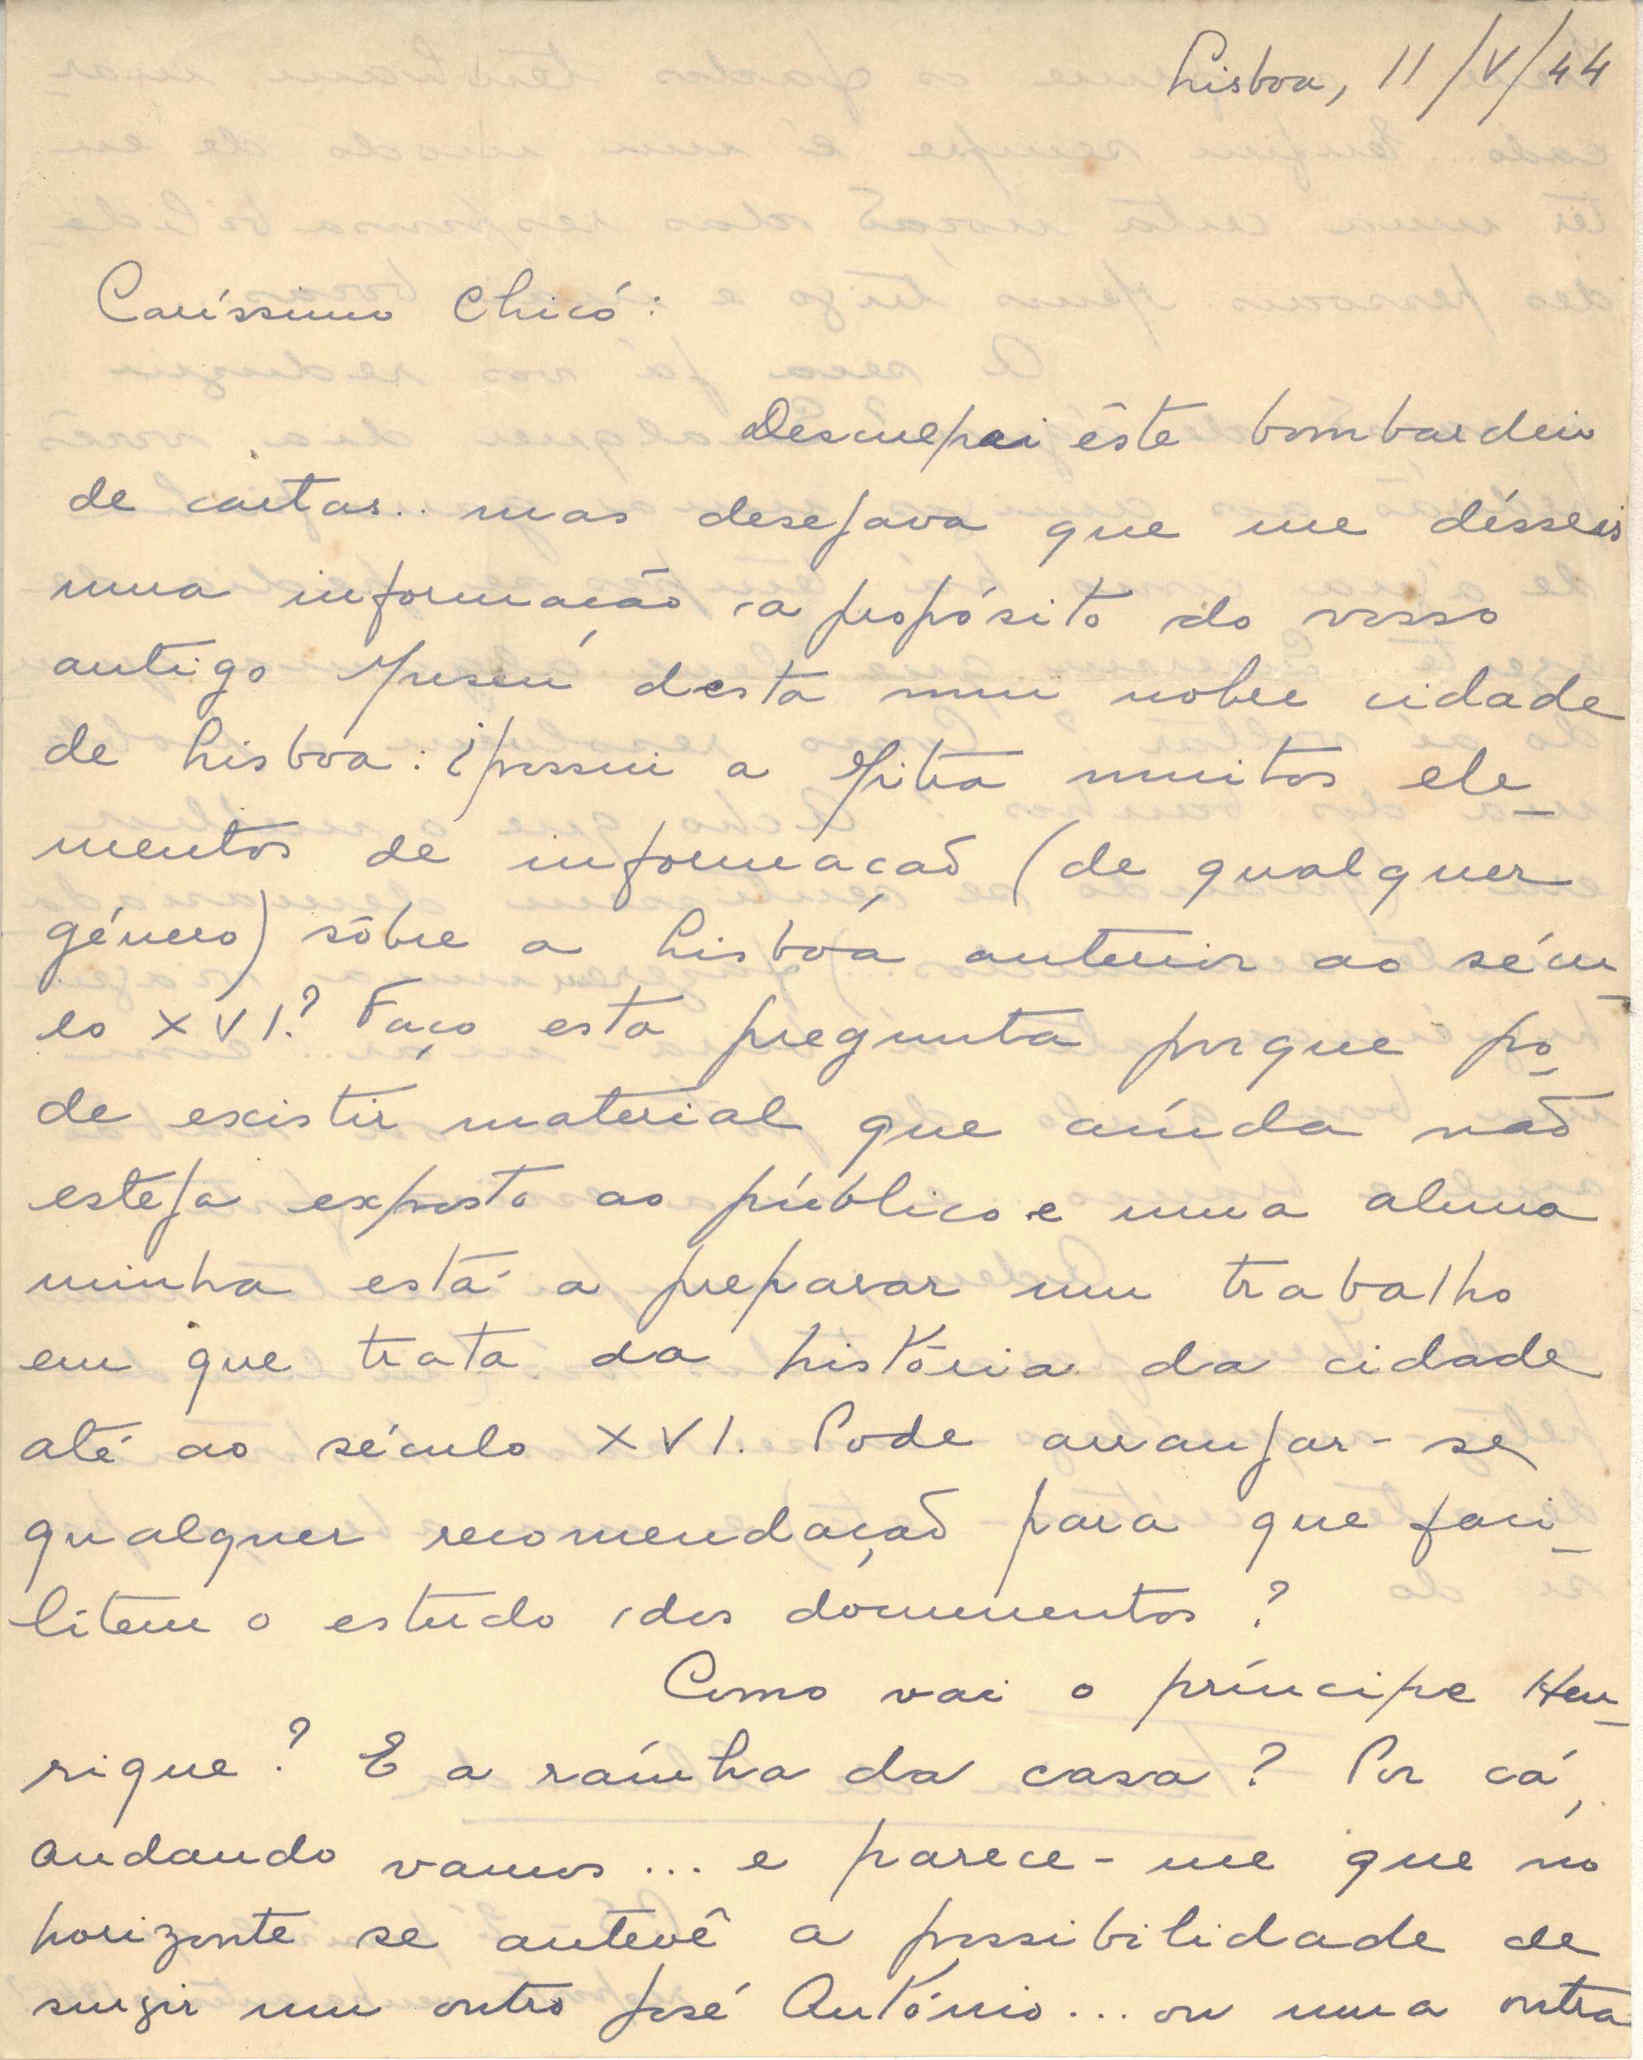 Lisboa, 11/V/44
Caríssimo Chicó:
Desculpai êste bombardeio
de cartas.. mas desejava que me désseis
uma informação a propósito do vosso
antigo Museu desta mui nobre cidade
de Lisboa: ¿possui a Mitra muitos ele-
mentos de informação (de qualquer
género) sôbre a Lisboa anterior ao sécu-
lo XVI.? Faço esta pregunta porque po-
de existir material que aínda não
esteja exposto ao público e uma aluna
minha está a preparar um trabalho
em que trata da história da cidade
até ao século XVI. Pode arranjar-se
qualquer recomendação para que faci-
litem o estudo dos documentos?
Como vai o príncipe Hen-
rique? E a raínha da casa? Por cá,
andando vamos... e parece-me que no
horizonte se antevê a possibilidade de
surgir um outro José António... ou uma outra